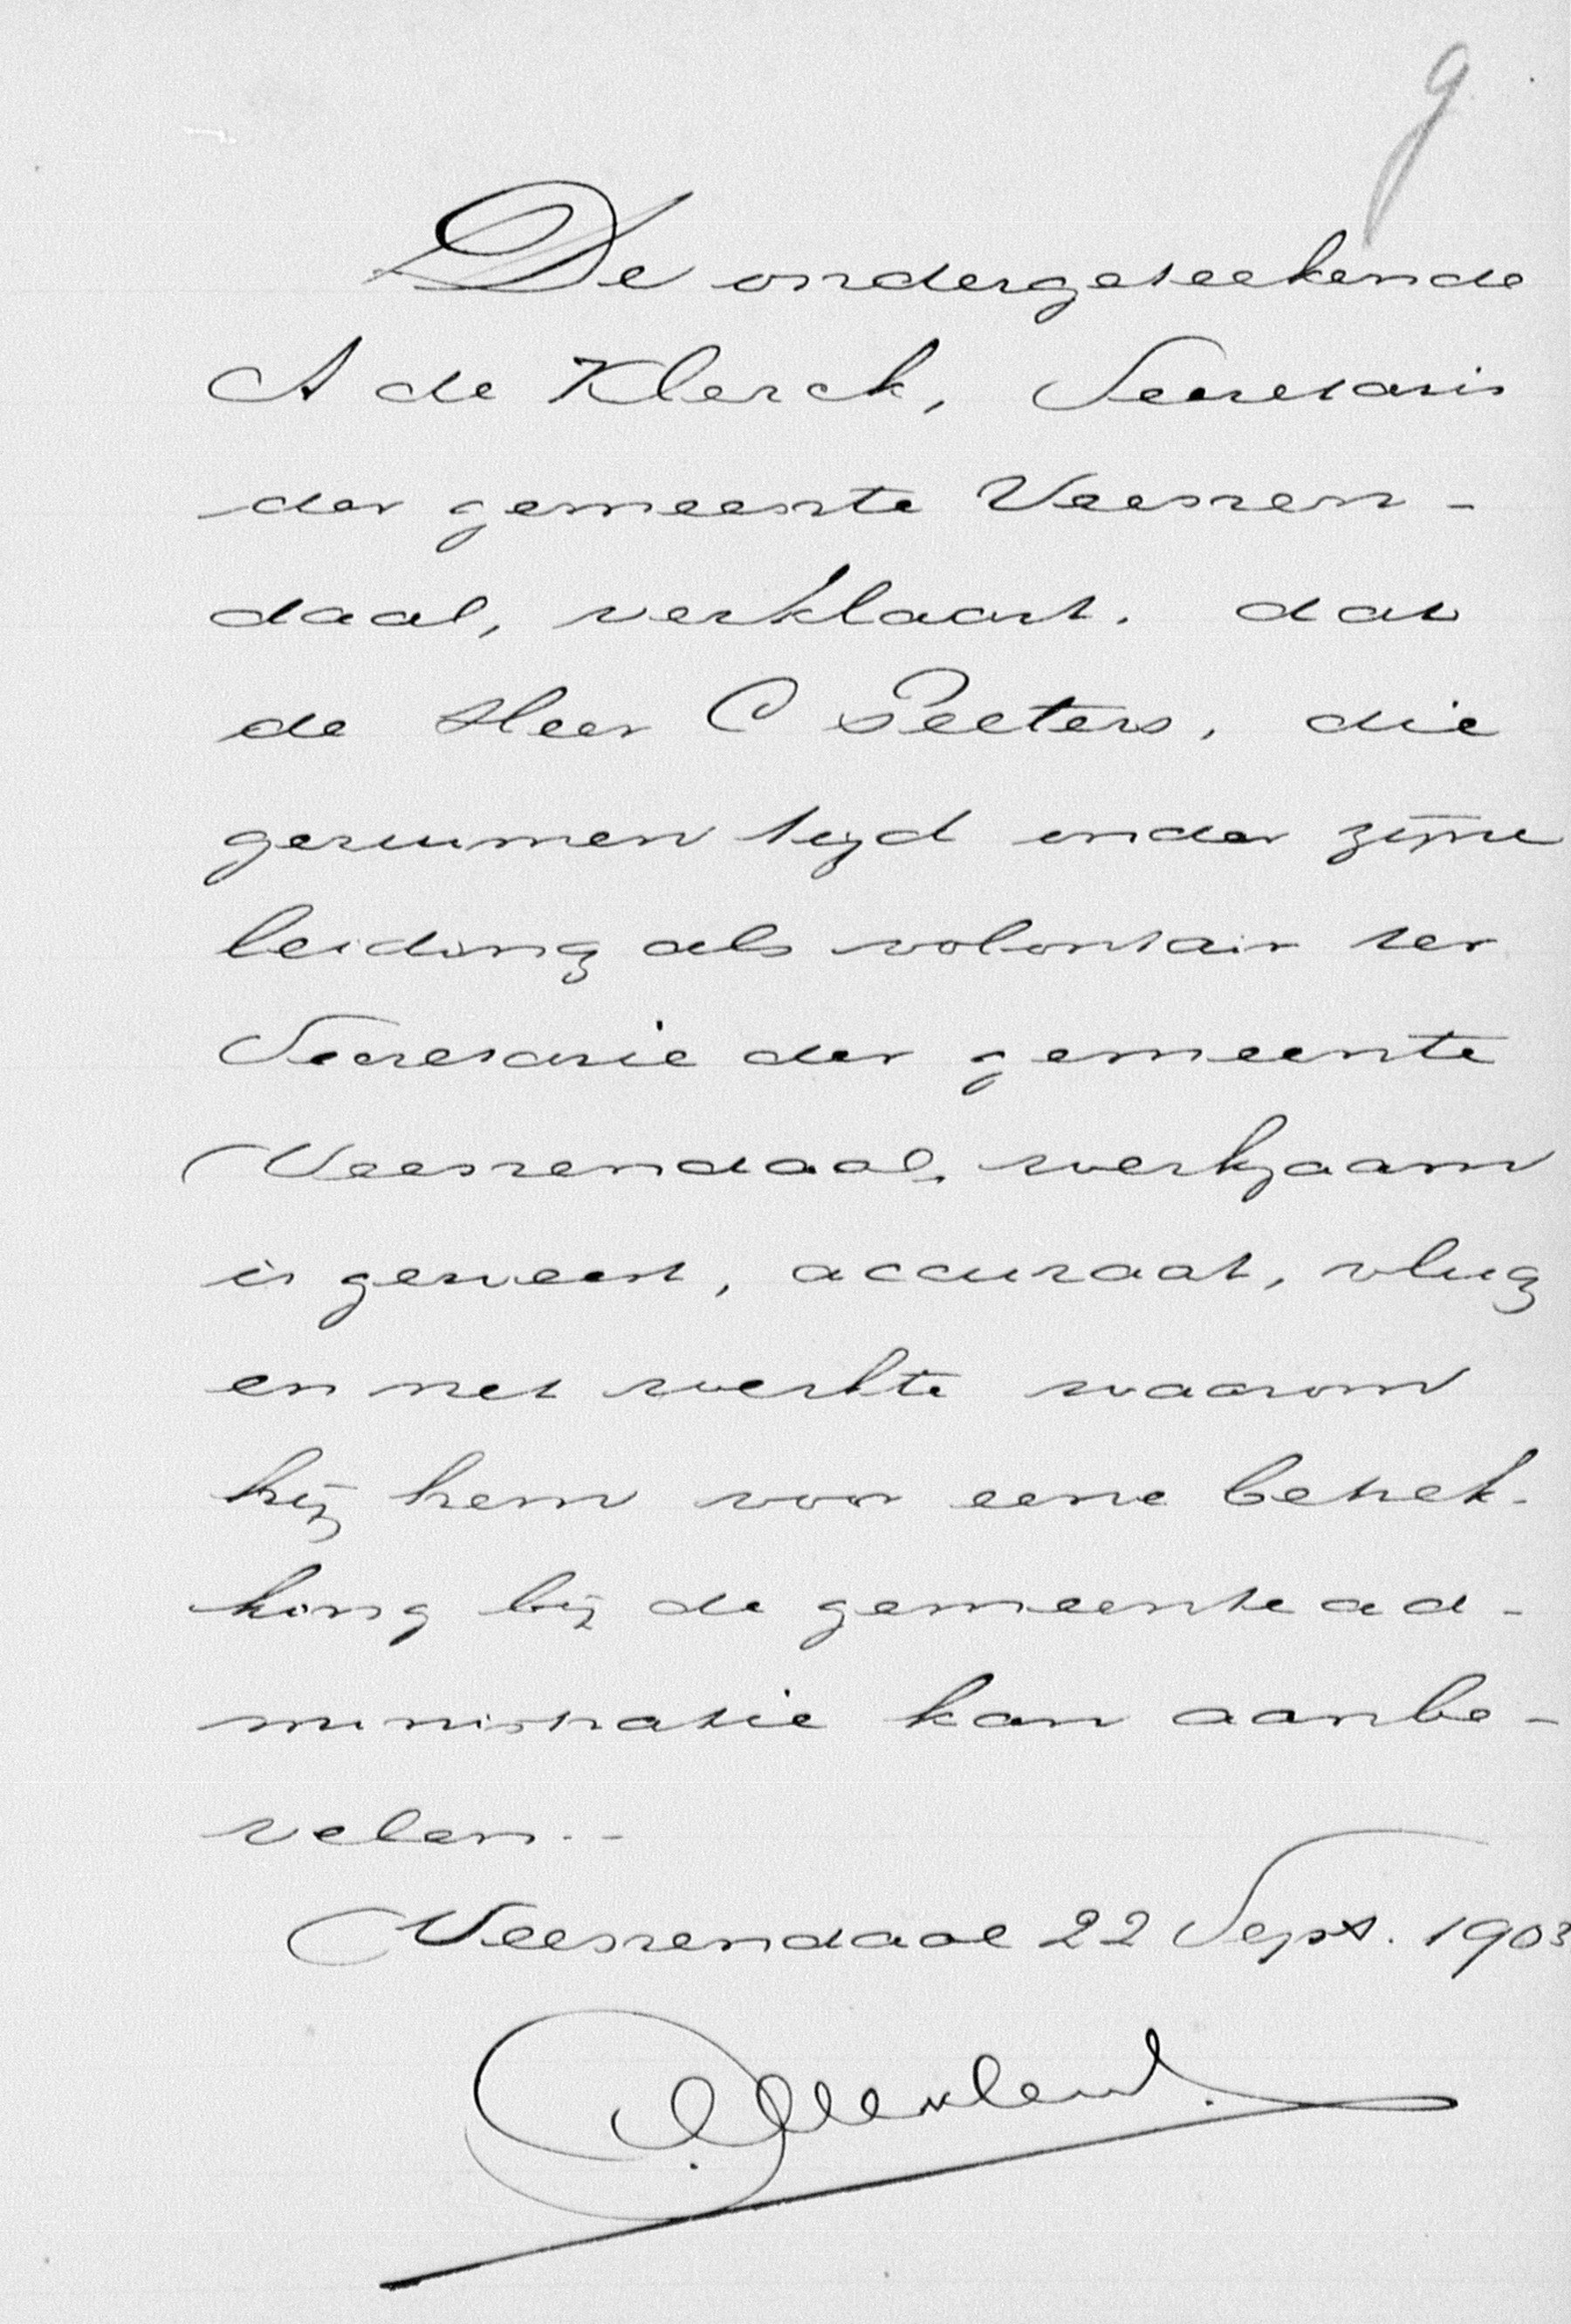 g
De ondergeteekende
A de Klerck, Secretaris
der gemeente Veenen-
daal, verklaart. dat
de Heer C Peeters, die
geruimen tijd onder zijne
leiding als volontair ter
Secretarie der gemeente
Veenendaal, werkzaam
is geweest, accuraat, vlug
en net werkte waarom
hij hem voor eene betrek-
king bij de gemeentead-
ministratie kan aanbe-
velen.-
Veenendaal 22 Sept. 1903